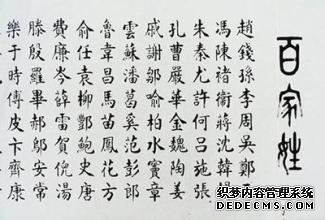 百家姓
趙錢孫李周吳鄭
馮陳褚衛蔣沈韓
朱秦尤許何呂施張
孔曹嚴華金魏陶姜
戚謝鄒喻柏水竇章
雲蘇潘葛奚范彭郎
魯韋昌馬苗鳳花方
俞任袁柳酆鮑史唐
費廉岑薛雷賀倪湯
滕殷羅畢郝鄔安常
樂于時傅皮卞齊康
织梦内容管理系统
DEDECMS.COM